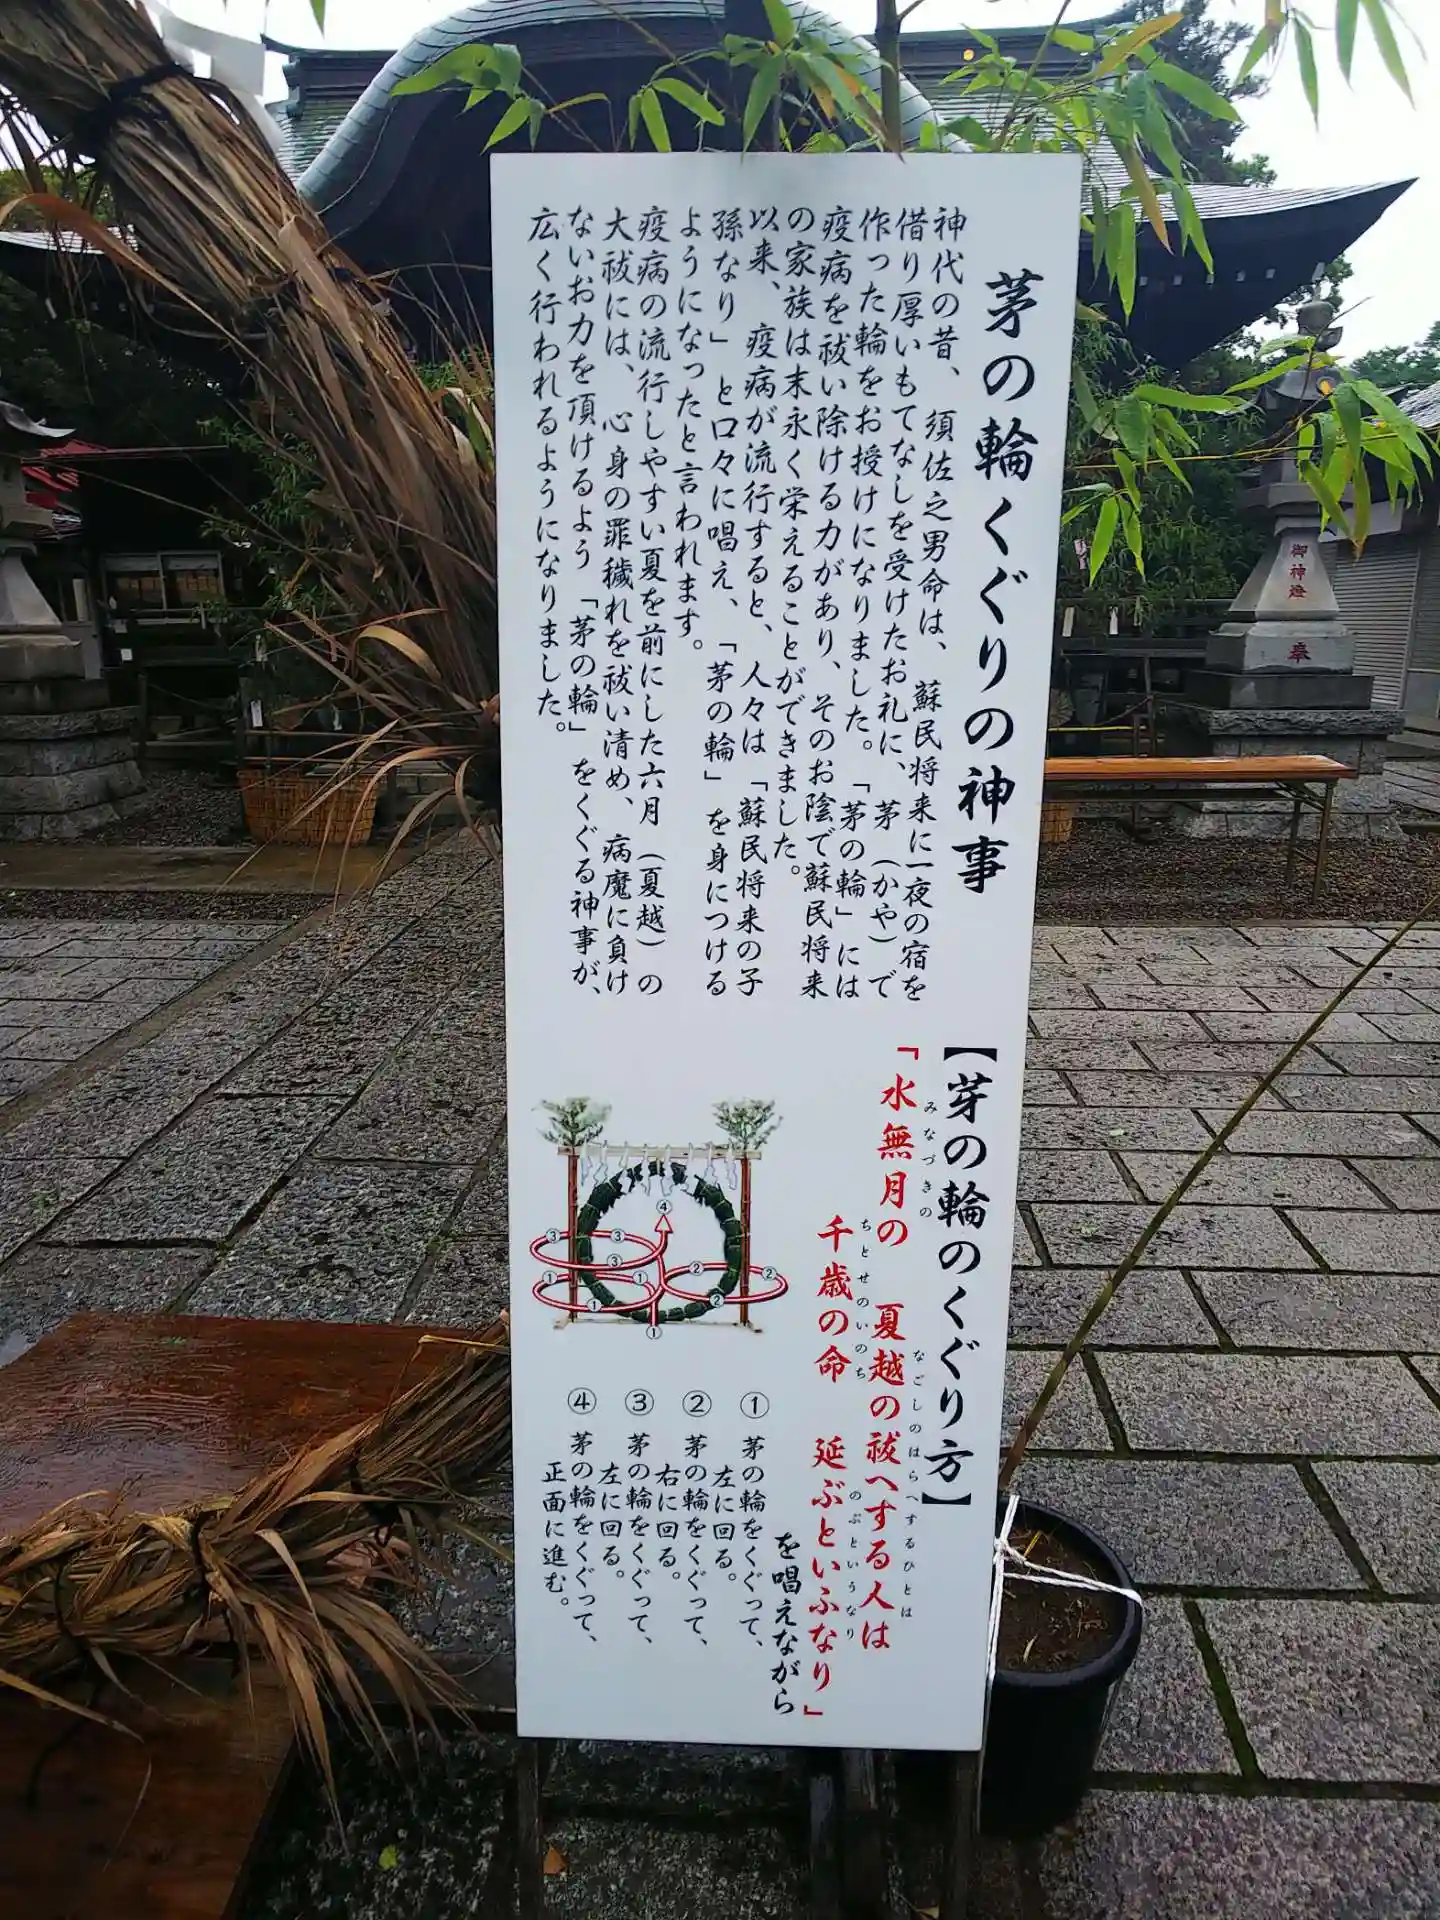 茅の輪くぐりの神事
神代の昔、須佐之男命は、蘇民将来に一夜の宿を
借り厚いもてなしを受けたお礼に、茅（かや）で
作った輪をお授けになりました。「茅の輪」には
疫病を祓い除ける力があり、そのお陰で蘇民将来
の家族は末永く栄えることができました。
以来、疫病が流行すると、人々は「蘇民将来の子
孫なり」と口々に唱え、「茅の輪」を身につける
ようになったと言われます。
疫病の流行しやすい夏を前にした六月（夏越）の
大祓には、心身の罪穢れを祓い清め、病魔に負け
ないお力を頂けるよう「茅の輪」をくぐる神事が、
広く行われるようになりました。
【芽の輪のくぐり方】
みなづきの　なごしのはらへするひとは
「水無月の　夏越の祓へする人は
ちとせのいのち　のぶというなり
千歳の命　延ぶといふなり」
を唱えながら
①茅の輪をくぐって、
左に回る。
②茅の輪をくぐって、
右に回る。
③茅の輪をくぐって、
左に回る。
④茅の輪をくぐって、
正面に進む。
④
③ ③
③
② ②
②
① ①
①
①
御神燈
奉